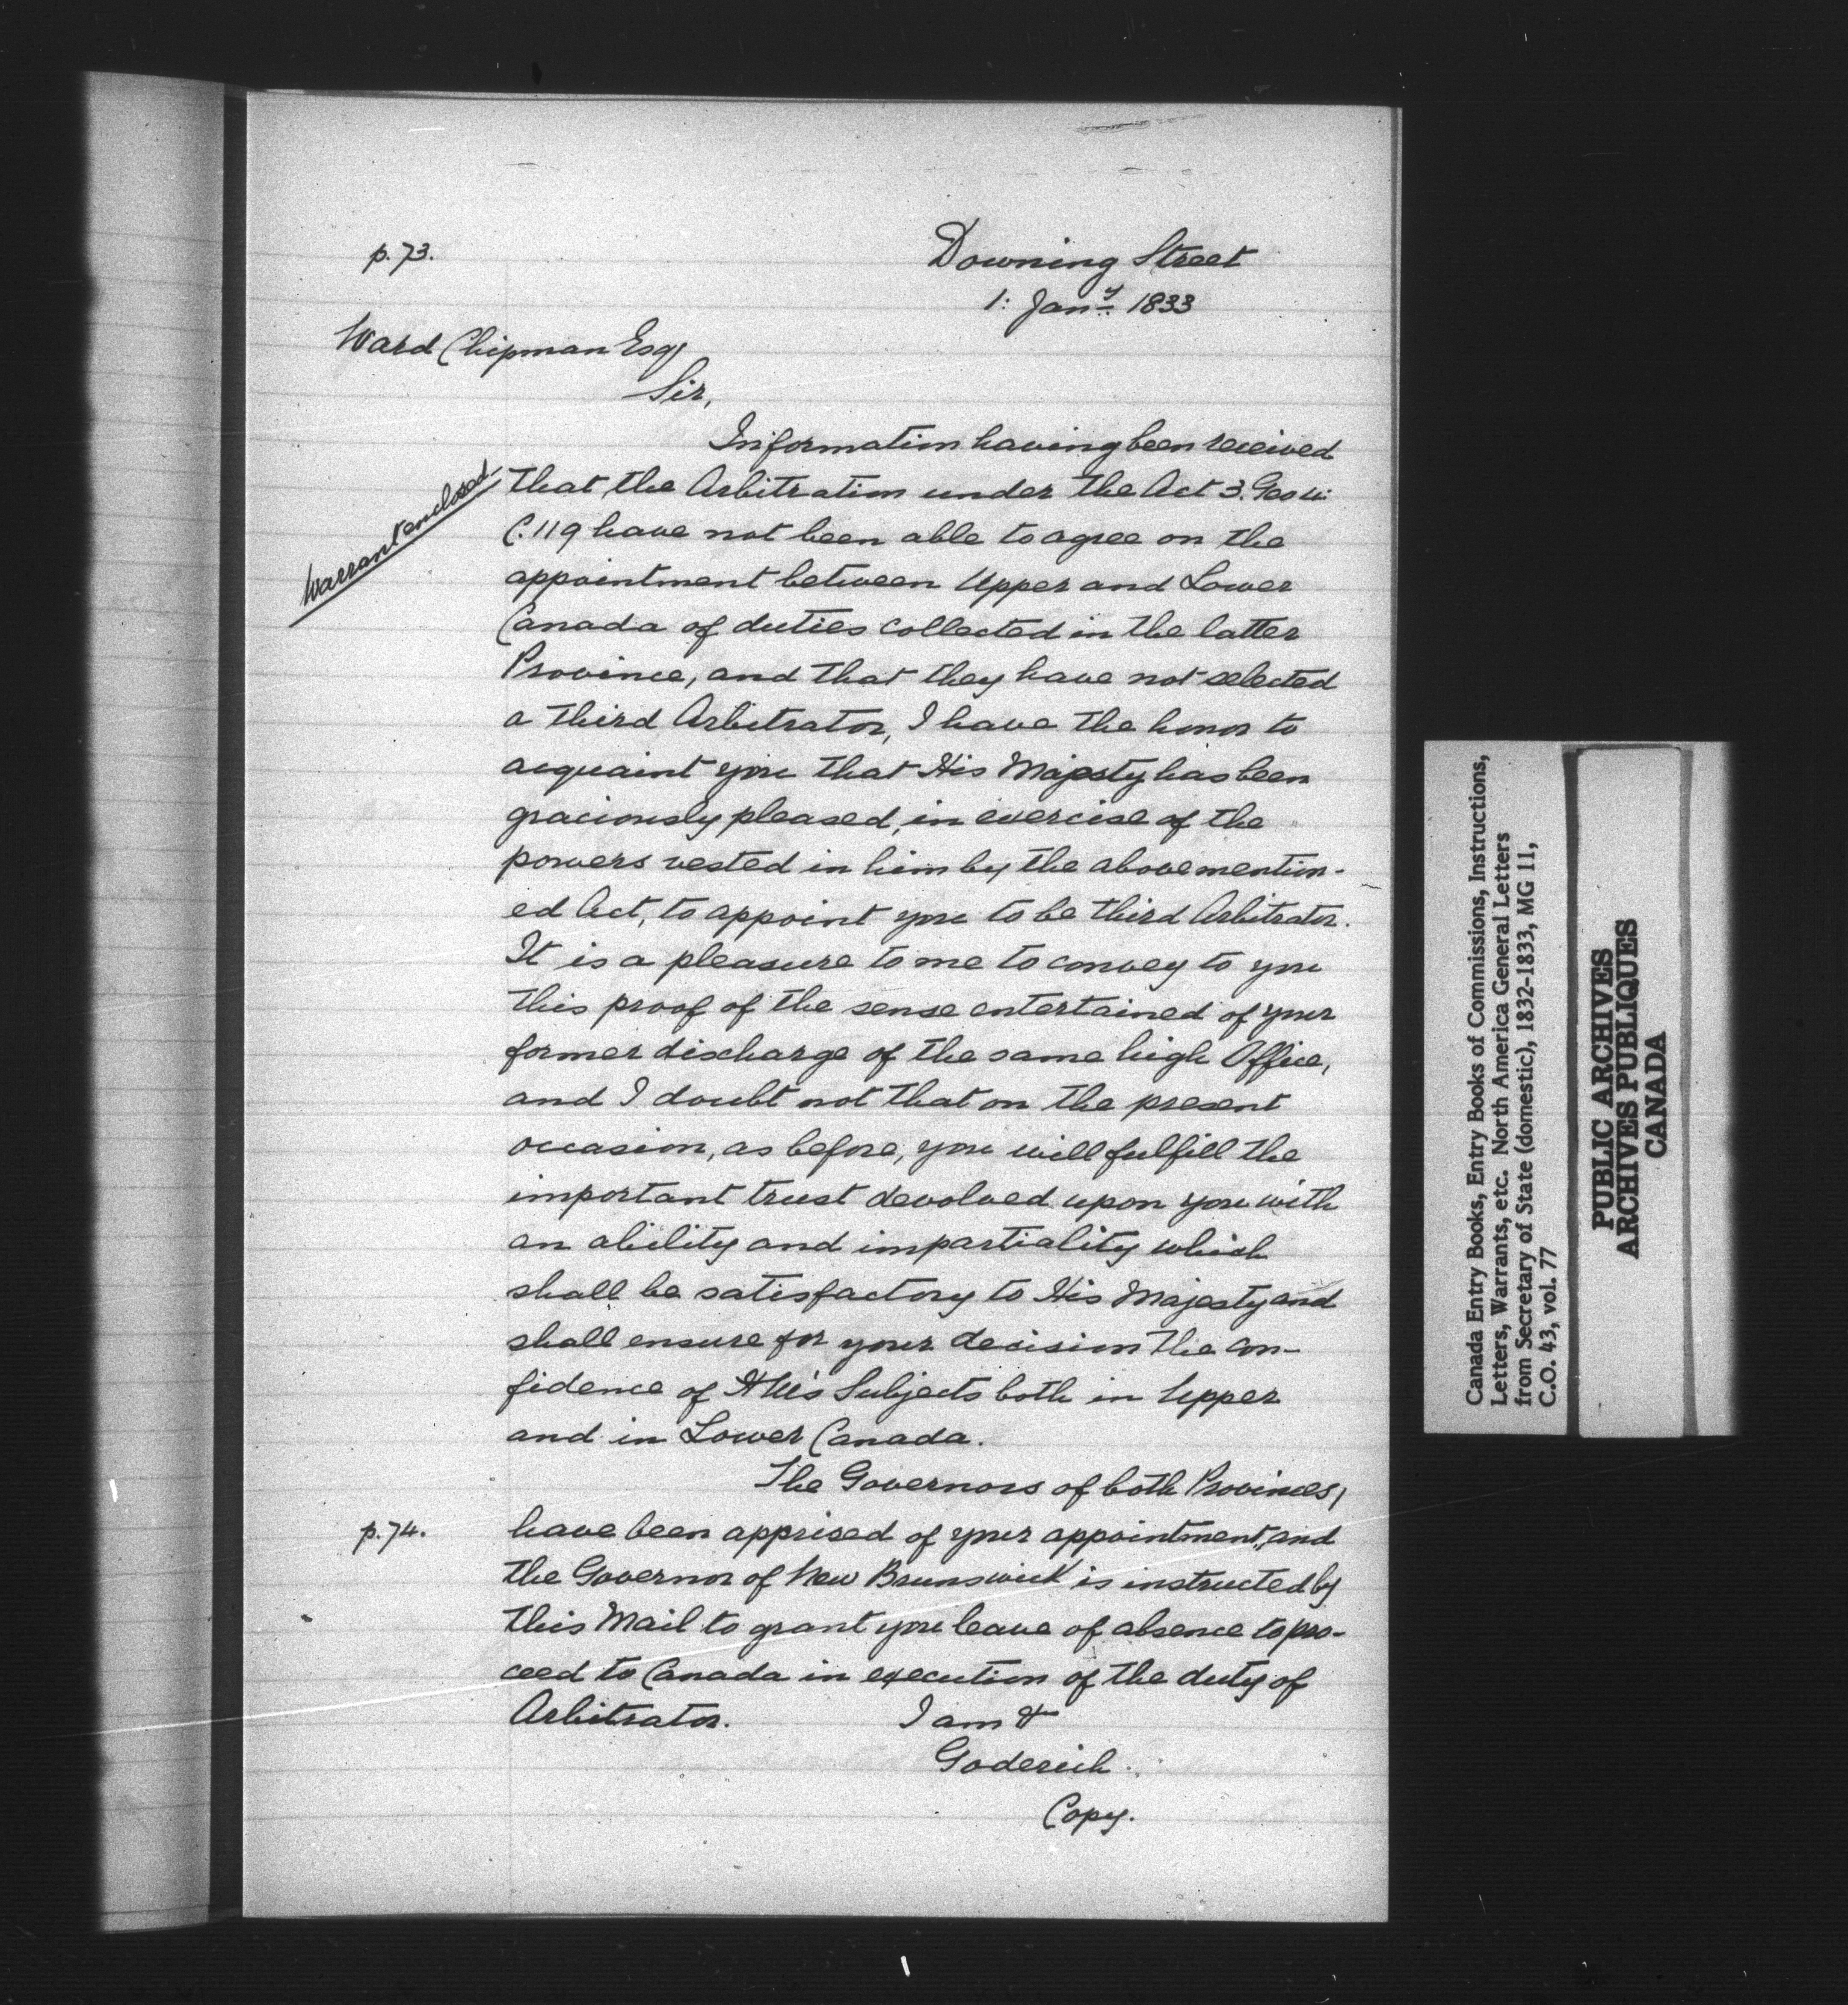 p.73.
Downing Street
1: Jany 1833
Ward Chipman Esq
Sir,
Information having been received
Warrant enclosed
that the Arbitration under the Act 3. Geo iv:
C.119 have not been able to agree on the
appointment between Upper and Lower
Canada of duties collected in the latter
Province, and that they have not selected
a third Arbitrator, I have the honor to
acquaint you that His Majesty has been
graciously pleased, in exercise of the
powers vested in him by the above mention-
ed Act, to appoint you to be third Arbitrator.
It is a pleasure to me to convey to you
this proof of the sense entertained of your
former discharge of the same high Office,
and I doubt not that on the present
occasion, as before, you will fulfill the
important trust devolved upon you with
an ability and impartiality which
shall be satisfactory to His Majesty and
shall ensure for your decision the con-
fidence of Subjects both in Upper
and in Lower Canada.
The Governors of both Provinces,
p.74.
have been apprised of your appointment, and
the Governor of New Brunswick is instructed by
this Mail to grant you leave of absence to pro-
ceed to Canada in execution of the duty of
Arbitrator. I am &
Goderich.
Copy.
Canada Entry Books, Entry Books of Commissions, Instructions,
Letters, Warrants, etc. North America General Letters
from Secretary of State (domestic), 1832-1833, MG 11,
C.O. 43, vol. 77
PUBLIC ARCHIVES
ARCHIVES PUBLIQUES
CANADA